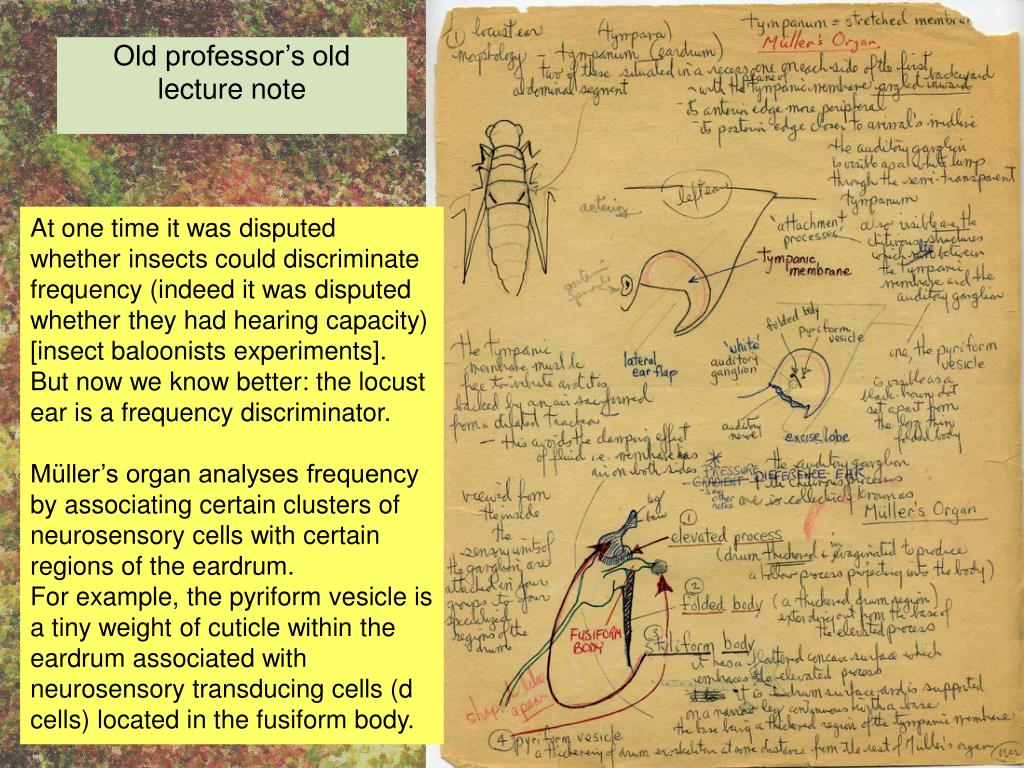 Old professor’s old
lecture note
At one time it was disputed
whether insects could discriminate
frequency (indeed it was disputed
whether they had hearing capacity)
[insect baloonists experiments].
But now we know better: the locust
ear is a frequency discriminator.
Müller’s organ analyses frequency
by associating certain clusters of
neurosensory cells with certain
regions of the eardrum.
For example, the pyriform vesicle is
a tiny weight of cuticle within the
eardrum associated with
neurosensory transducing cells (d
cells) located in the fusiform body.
① locust ear
morphology
(tympara)
- tympanum (eardrum)
tympanum = stretched membran
Müller's Organ
two of these situated in a recess, one on each side of the first
abdominal segment
- with the plane of tympanic membrane angled inward backward
- its anterior edge more peripheral
- its posterior edge closer to animal's midline
the auditory ganglion
is visible as a white lump
through the semi-transparent
tympanum
also visible are the
chitinous structures
which lie between
the tympanic
membrane and the
auditory ganglion
left ear
anterior
'attachment
processes'
tympanic
membrane
lateral
ear flap
the tympanic
membrane must be
free to vibrate and it is
backed by an air sac formed
from a dilated trachea
- this avoids the damping effect
of fluid i.e. membrane has
air on both sides
PRESSURE
GRADIENT DIFFERENCE EAR
- see
other
notes
folded body
pyriform
vesicle
'white'
auditory
ganglion
auditory
nerve
excise lobe
one, the pyriform
vesicle
is visible as a
black-brown dot
set apart from
the long thin
folded body
the auditory ganglion
+ the chitinous processes
are collectively known as
Müller's Organ
viewed from
the inside
the
sensory units of
the ganglion are
attached in four
groups to four
specialized
regions of the
drum
①
elevated process
(drum thickened & invaginated to produce
a hollow process projecting into the body)
②
folded body (a thickened drum region)
extending out from the base of
the elevated process
FUSIFORM
BODY
③
styliform body
it has a flattened concave surface which
embraces the elevated process
it is drum surface and is supported
on a narrow leg continuous with a base
the base being a thickened region of the tympanic membrane
shaped like
a pear
④ pyriform vesicle
a thickening of drum exoskeleton at some distance from the rest of Müller's organ